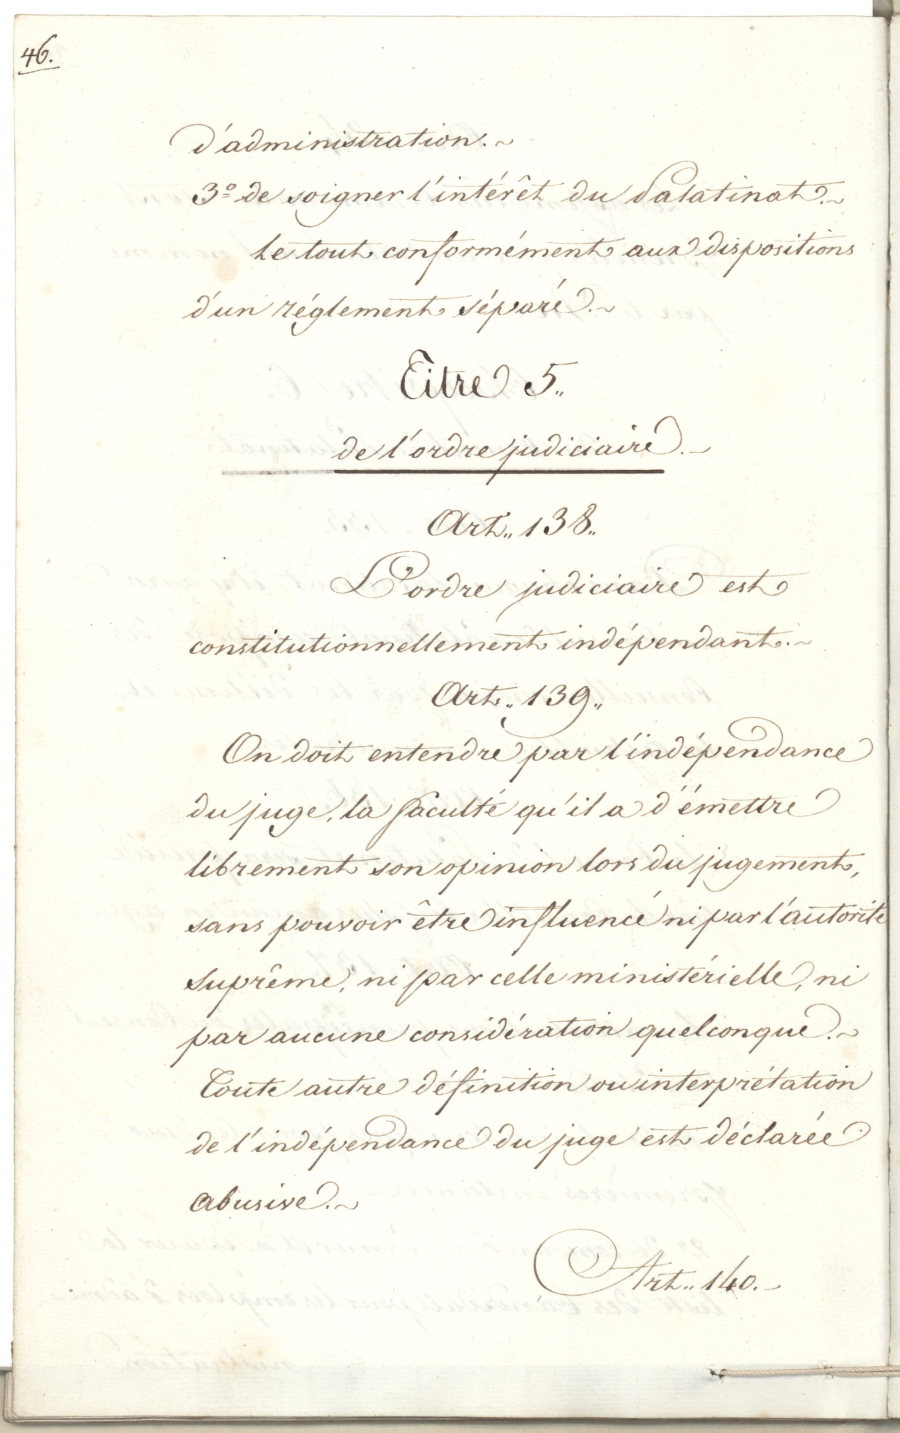 46.
d'administration.~
3º de soigner l'intérêt du Palatinat.~
Le tout conformément aux dispositions
d'un réglement séparé.~
Titre 5„
de l'ordre judiciaire.~
Art„ 138„
L'ordre judiciaire est
constitutionnellement indépendant.~
Art„ 139„
On doit entendre par l'indépendance
du juge, la faculté qu'il a d'émettre
librement son opinion lors du jugement,
sans pouvoir être influencé ni par l'autorité
suprême, ni par celle ministérielle, ni
par aucune considération quelconque.~
Toute autre définition ou interprétation
de l'indépendance du juge est déclarée
abusive.~
Art„ 140.~